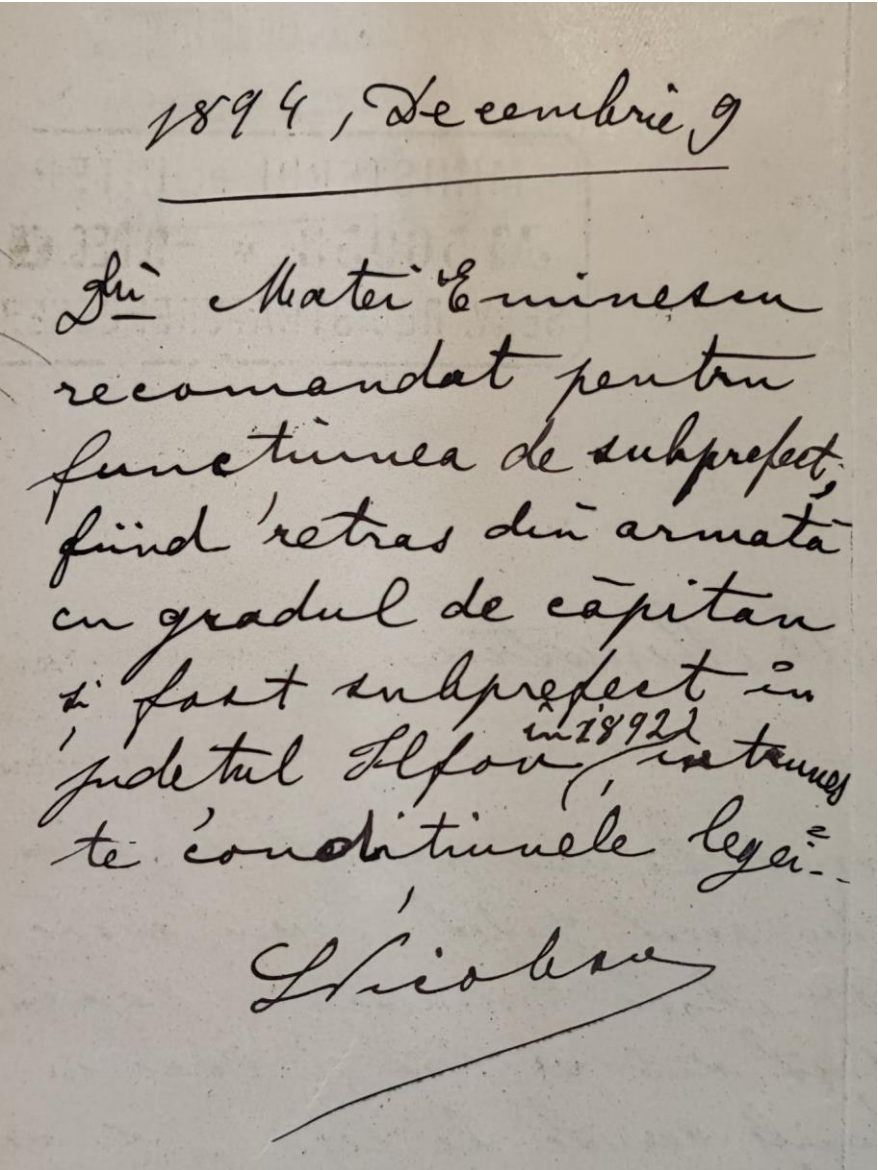 1894, Decembrie 9
Dnŭ Mateĭ Eminescu
recomandat pentru
funcțiunea de subprefect,
fiind retras din armată
cu gradul de căpitan
și fost subprefect în
în 1892
județul Ilfov, întrunes
te condițiunele legeĭ.